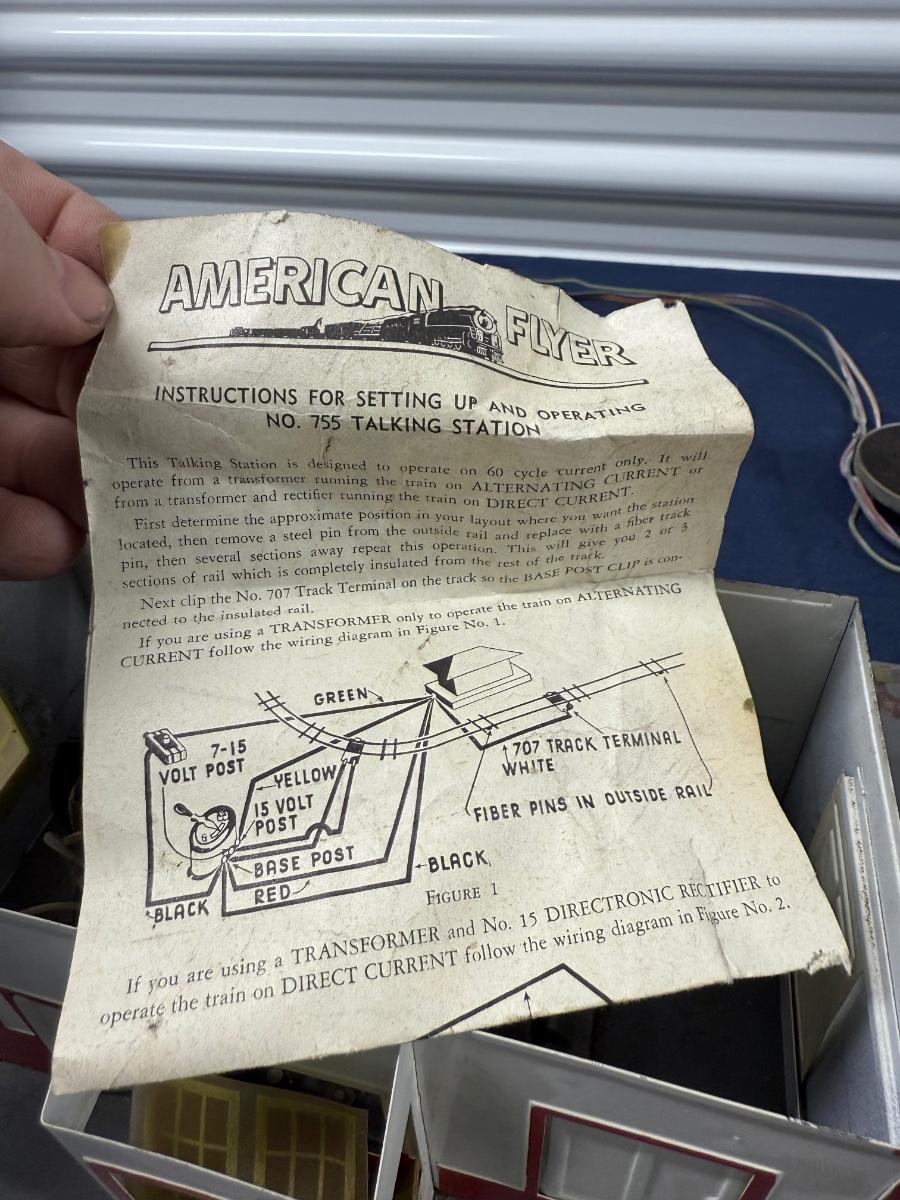 AMERICAN FLYER
INSTRUCTIONS FOR SETTING UP AND OPERATING
NO. 755 TALKING STATION
This Talking Station is designed to operate on 60 cycle current only. It will
operate from a transformer running the train on ALTERNATING CURRENT or
from a transformer and rectifier running the train on DIRECT CURRENT.
First determine the approximate position in your layout where you want the station
located, then remove a steel pin from the outside rail and replace with a fiber track
pin, then several sections away repeat this operation. This will give you 2 or 3
sections of rail which is completely insulated from the rest of the track.
Next clip the No. 707 Track Terminal on the track so the BASE POST CLIP is con-
nected to the insulated rail.
If you are using a TRANSFORMER only to operate the train on ALTERNATING
CURRENT follow the wiring diagram in Figure No. 1.
GREEN
7-15
VOLT POST
YELLOW
15 VOLT
POST
707 TRACK TERMINAL
WHITE
FIBER PINS IN OUTSIDE RAIL
BASE POST
BLACK
RED
BLACK
FIGURE 1
If you are using a TRANSFORMER and No. 15 DIRECTRONIC RECTIFIER to
operate the train on DIRECT CURRENT follow the wiring diagram in Figure No. 2.